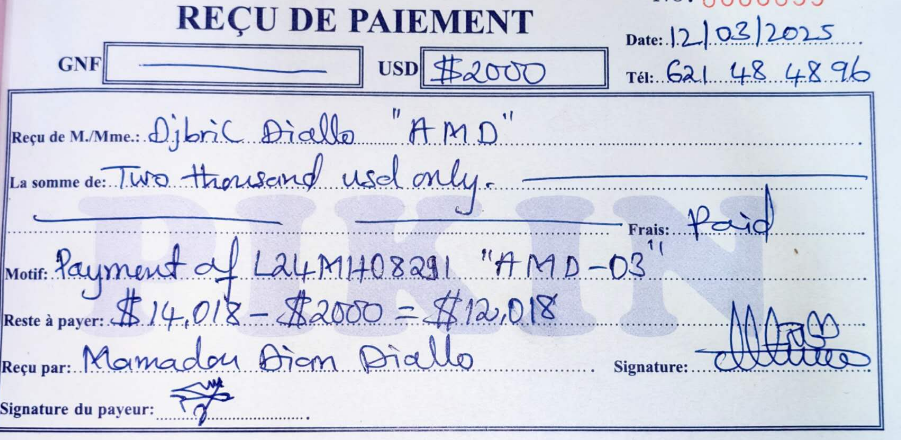 REÇU DE PAIEMENT
Date: 12/03/2025
GNF USD $2000 Tél: 621 48 48 96
Reçu de M./Mme.: Djbril Diallo "AMD"
La somme de: Two thousand usd only.
Frais: Paid
PIKIN
Motif: Payment of L24M1408291 "AMD-03"
Reste à payer: $14,018 - $2000 = $12,018
Reçu par: Mamadou Dian Diallo Signature:
Signature du payeur: